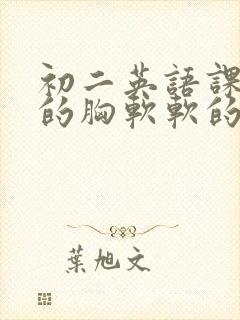 初二英語課
的胸軟軟的
葉旭文